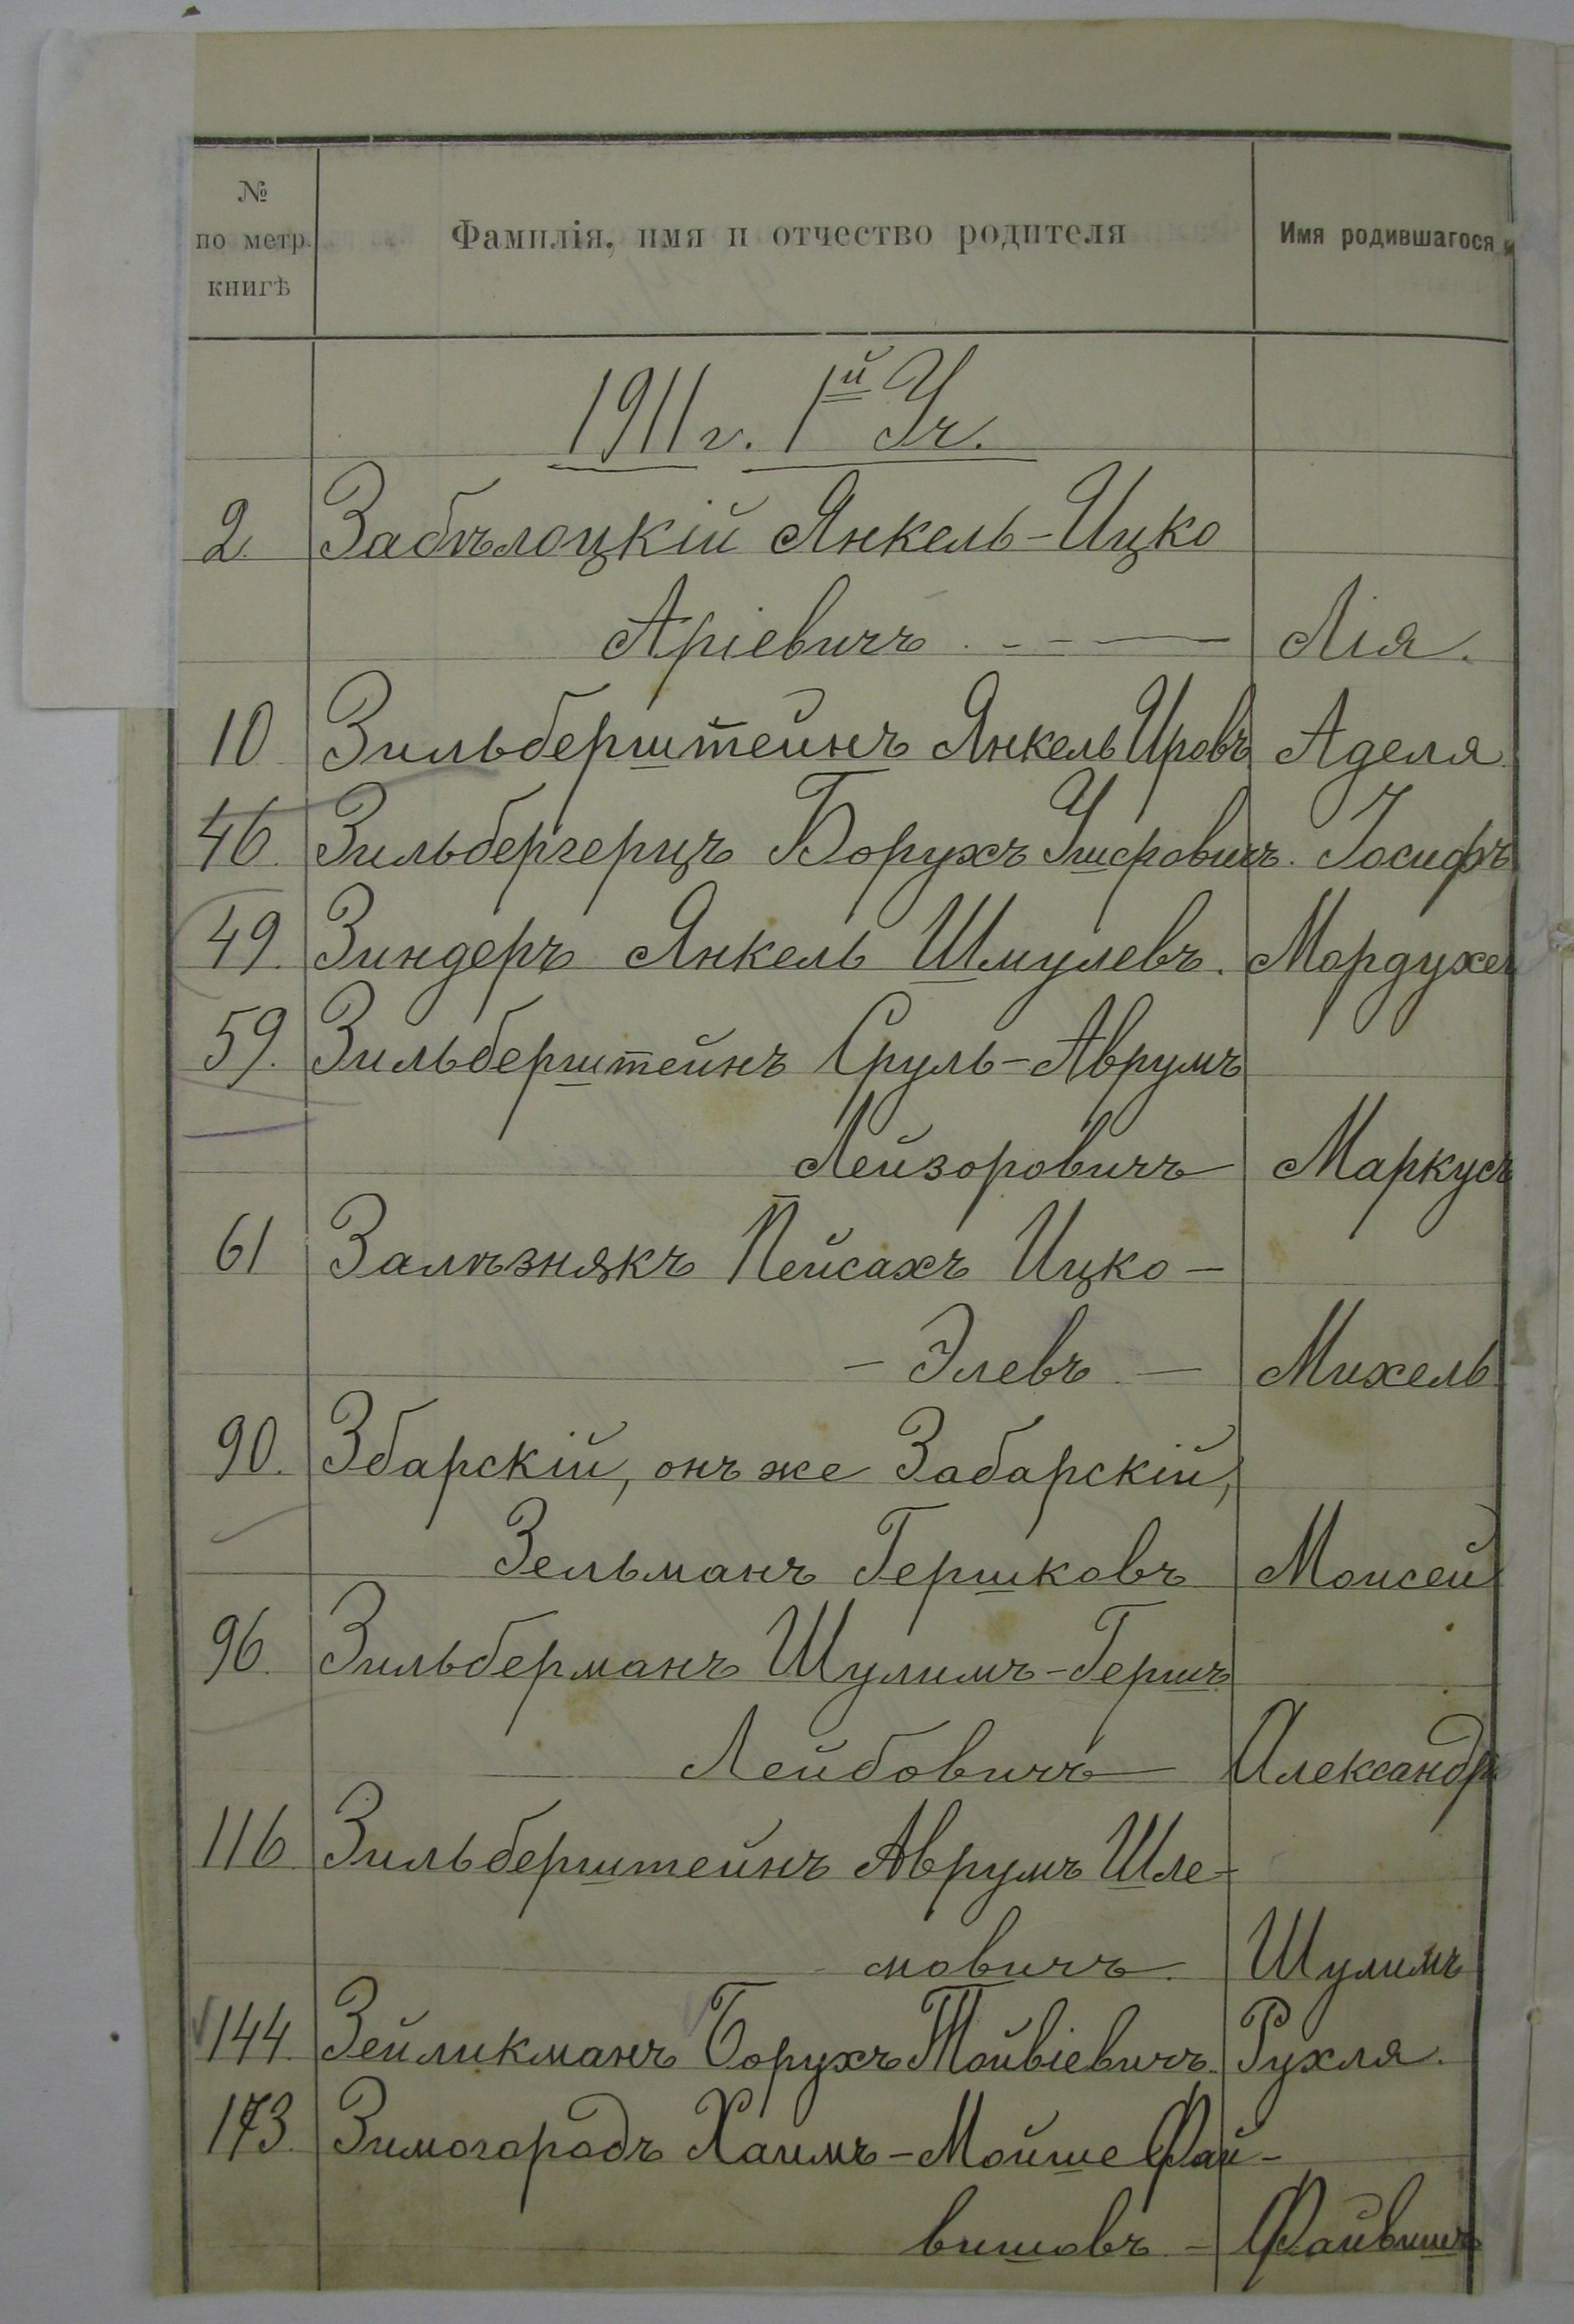 № по метр. книгѣ Фамилія, имя и отчество родителя Имя родившагося
1911 г. 1й Уч.
2. Забѣлоцкій Янкель-Ицко
Аріевичъ - - — Лія.
10 Зильберштейнъ Янкель Ировъ Аделя
46. Зильбергерцъ Борухъ Ушеровичъ. Іосифъ
49. Зиндеръ Янкель Шмулевъ. Мордухей
59. Зильберштейнъ Сруль-Аврумъ
Лейзоровичъ Маркусъ
61 Залѣзнякъ Пейсахъ Ицко-
- Элевъ — Михель
90. Збарскій, онъ же Забарскій,
Зельманъ Гершковъ Моисей
96. Зильберманъ Шулимъ-Гершъ
Лейбовичъ Александръ
116 Зильберштейнъ Аврумъ Шле-
мовичъ. Шулимъ
144. Зейликманъ Борухъ Тойвіевичъ. Рухля.
173. Зимогородъ Хаимъ-Мойше Фай-
вишовъ - Файвишъ